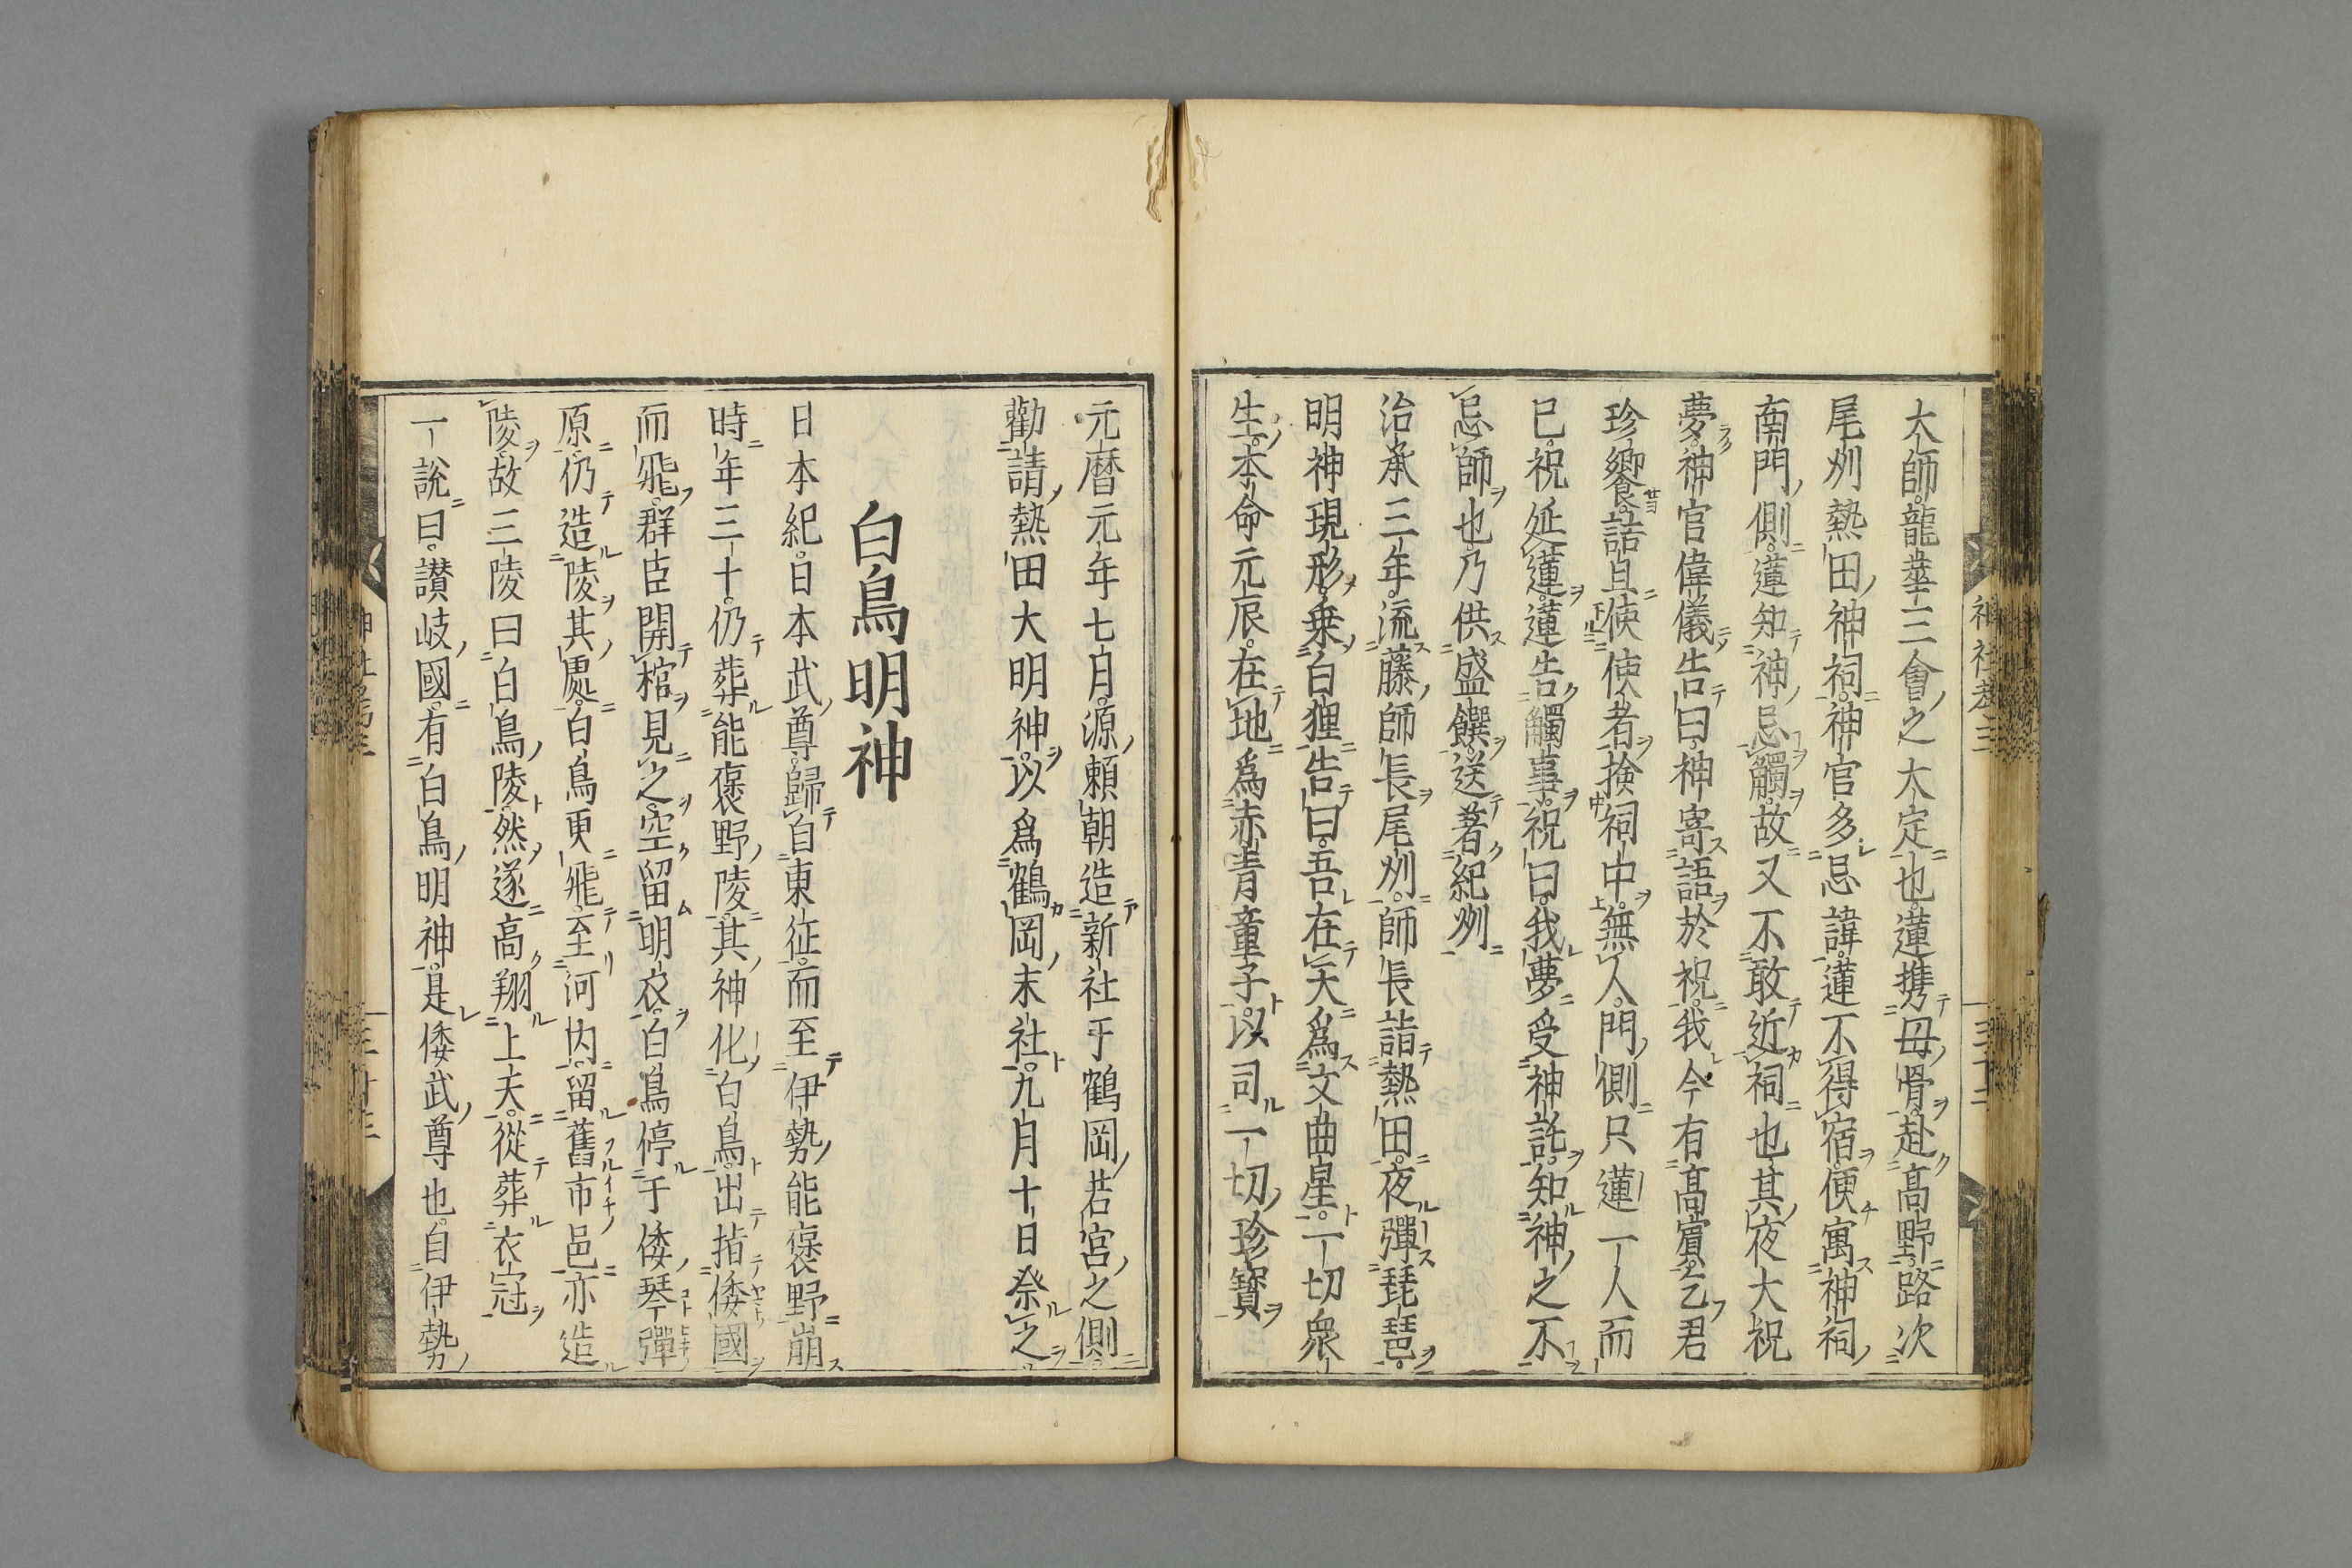 大師龍華三會之大定也蓮携母骨赴髙野路次
尾州熱田神祠神官多忌諱蓮不得宿便寓神祠
南門側蓮知神忌觸故又不敢近祠也其夜大祝
夢神官偉儀告曰神寄語於祝我今有髙賓乙君
珍饗詰旦使使者撿祠中無人門側只蓮一人而
已祝延蓮蓮告觸事祝曰我夢受神託知神之不
忌師也乃供盛饌送著紀州
治承三年流藤師長尾州師長詣熱田夜彈琵琶
明神現形乗白狸告曰吾在天爲文曲星一切衆
生本命元辰在地爲赤青童子以司一切珍寶
元暦元年七月源頼朝造新社于鶴岡若宮之側
勸請熱田大明神以爲鶴岡末社九月十日祭之
白鳥明神
日本紀日本武尊歸自東征而至伊勢能褒野崩
時年三十仍葬能褒野陵其神化白鳥出指倭國
而飛群臣開棺見之空留明衣白鳥停于倭琴彈
原仍造陵其處白鳥更飛至河内留舊市邑亦造
陵故三陵曰白鳥陵然遂高翔上天從葬衣冠
一說曰讃岐國有白鳥明神是倭武尊也自伊勢